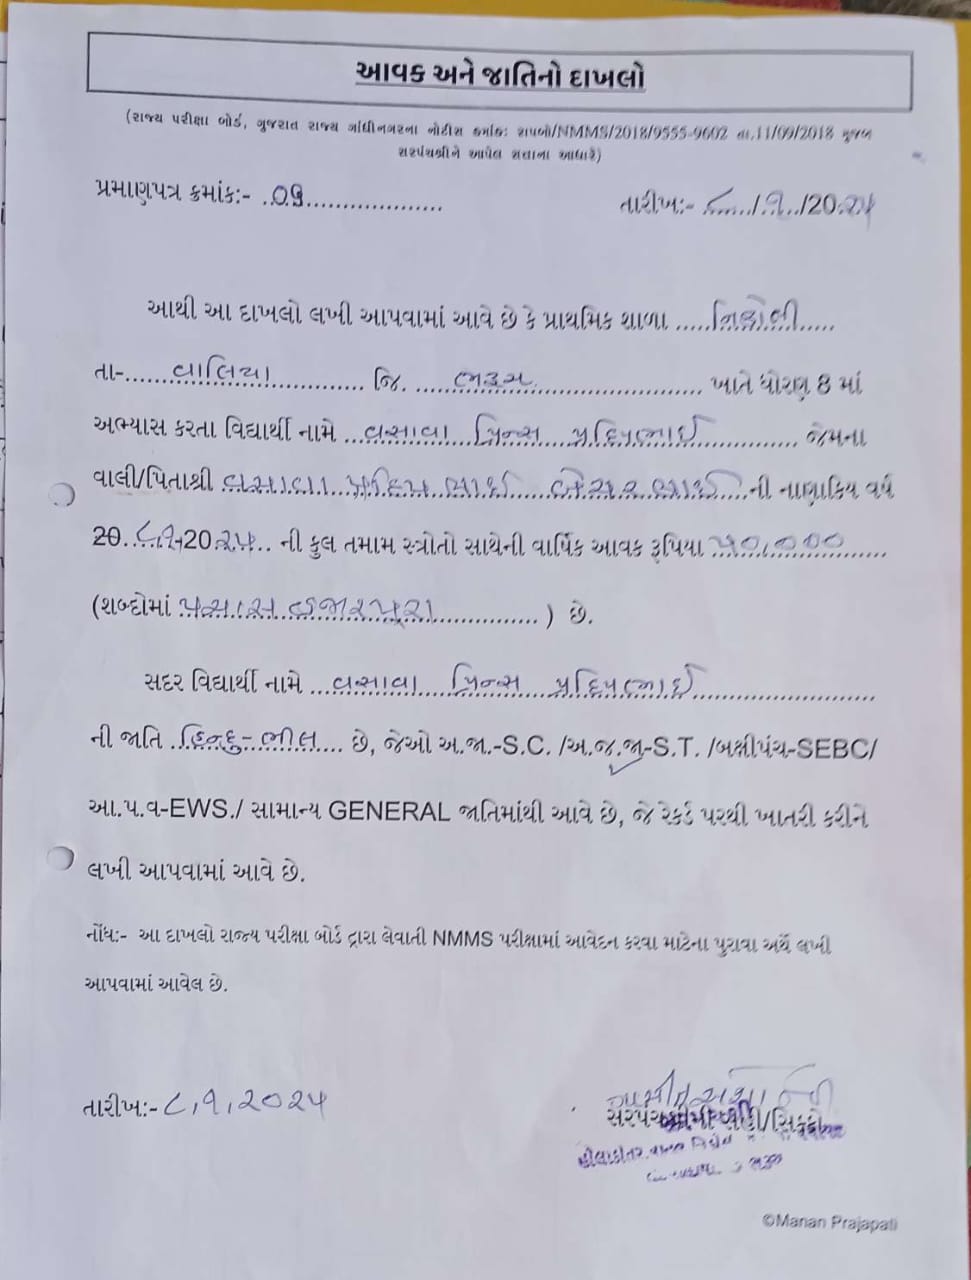 આવક અને જાતિનો દાખલો
(રાજ્ય પરીક્ષા બોર્ડ, ગુજરાત રાજ્ય ગાંધીનગરના નોટીસ ક્રમાંક: રાપબો/NMMS/2018/9555-9602 તા.11/09/2018 મુજબ
સરપંચશ્રીને આપેલ સત્તાના આધારે)
પ્રમાણપત્ર ક્રમાંક:- ..૦૬....................
તારીખ:- ૮..../.૧../20.૨૫
આથી આ દાખલો લખી આપવામાં આવે છે કે પ્રાથમિક શાળા .....નિકોલી.....
તા-......વાલિયા............. જિ. .....ભરૂચ...................... ખાતે ધોરણ 8 માં
અભ્યાસ કરતા વિદ્યાર્થી નામે ...વસાવા પ્રિન્સ પ્રદિપભાઈ............... જેમના
વાલી/પિતાશ્રી .વસાવા...પ્રદિપભાઈ....કેસરભાઈ....ની નાણાકિય વર્ષ
20..૮.૧-20.૨૫.. ની કુલ તમામ સ્ત્રોતો સાથેની વાર્ષિક આવક રૂપિયા ૫૦,૦૦૦......
(શબ્દોમાં પચાસ હજાર પુરા................) છે.
સદર વિદ્યાર્થી નામે ...વસાવા....પ્રિન્સ....પ્રદિપભાઈ..........................
ની જાતિ .હિન્દુ-ભીલ.... છે, જેઓ અ.જા.-S.C. /અ.જ.જા-S.T. /બક્ષીપંચ-SEBC/
આ.પ.વ-EWS./ સામાન્ય GENERAL જાતિમાંથી આવે છે, જે રેકર્ડ પરથી ખાતરી કરીને
લખી આપવામાં આવે છે.
નોંધ:- આ દાખલો રાજ્ય પરીક્ષા બોર્ડ દ્વારા લેવાતી NMMS પરીક્ષામાં આવેદન કરવા માટેના પુરાવા અર્થે લખી
આપવામાં આવેલ છે.
તારીખ:- ૮,૧,૨૦૨૫
સરપંચશ્રીની સહી/સિક્કો
©Manan Prajapati